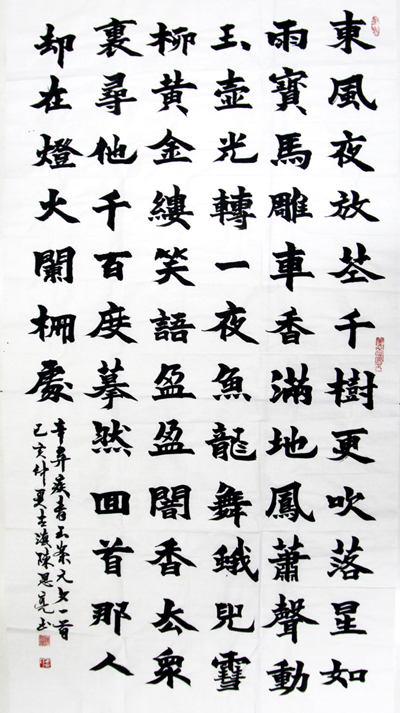 東風夜放花千樹更吹落星如
雨寶馬雕車香滿地鳳蕭聲動
玉壺光轉一夜魚龍舞蛾兒雪
柳黃金縷笑語盈盈闇香去眾
裏尋他千百度摹然回首那人
却在燈火闌柵處
辛弃疾青玉案元夕一首
己亥仲夏古滇陳思亮书